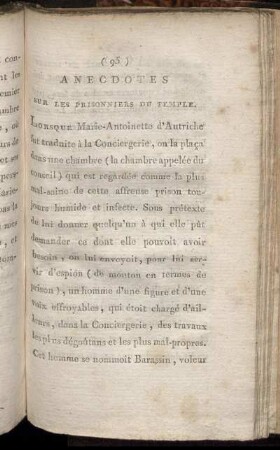 ( 95 )
ANECDOTES
SUR LES PRISONNIERS DU TEMPLE.
LORSQUE Marie-Antoinette d'Autriche
fut traduite à la Conciergerie, on la plaça
dans une chambre ( la chambre appelée du
conseil ) qui est regardée comme la plus
mal-saine de cette affreuse prison tou-
jours humide et infecte. Sous prétexte
de lui donner quelqu'un à qui elle pût
demander ce dont elle pourroit avoir
besoin, on lui envoyoit, pour lui ser-
vir d'espion ( de mouton en termes de
prison ), un homme d'une figure et d'une
voix effroyables, qui étoit chargé d'ail-
leurs, dans la Conciergerie, des travaux
les plus dégoûtans et les plus mal-propres.
Cet homme se nommoit Barassin, voleur